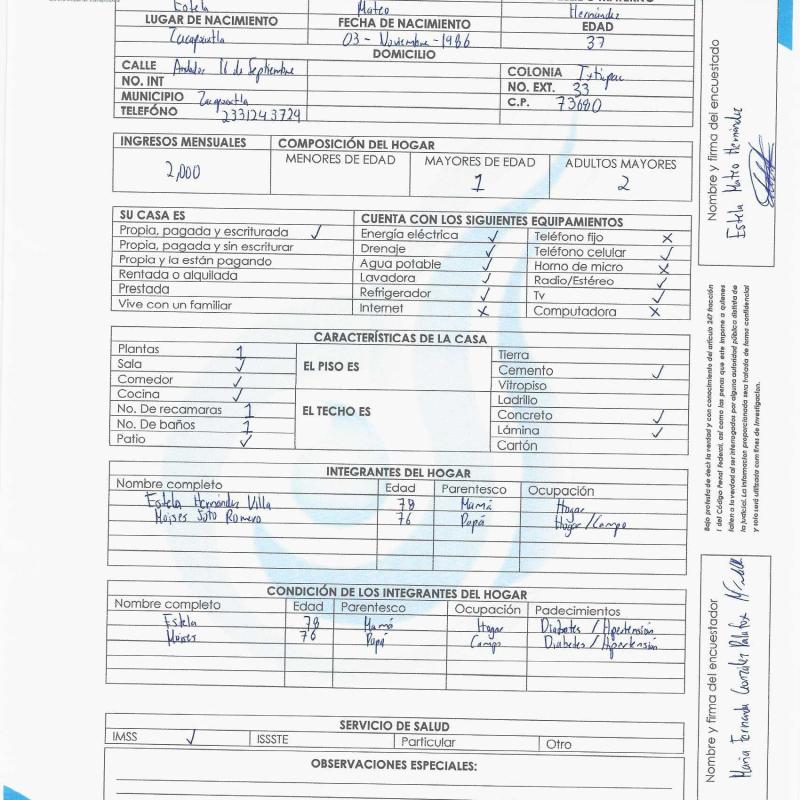 Estela Mateo Hernández
LUGAR DE NACIMIENTO FECHA DE NACIMIENTO EDAD
Zacapoaxtla 03 - Noviembre - 1986 37
DOMICILIO
CALLE Andador 16 de Septiembre COLONIA Ixtiapac
NO. INT NO. EXT. 33
MUNICIPIO Zacapoaxtla C.P. 73680
TELEFÓNO 2331243729
INGRESOS MENSUALES COMPOSICIÓN DEL HOGAR
2,000 MENORES DE EDAD MAYORES DE EDAD ADULTOS MAYORES
1 2
SU CASA ES CUENTA CON LOS SIGUIENTES EQUIPAMIENTOS
Propia, pagada y escriturada ✓ Energía eléctrica ✓ Teléfono fijo x
Propia, pagada y sin escriturar Drenaje ✓ Teléfono celular ✓
Propia y la están pagando Agua potable ✓ Horno de micro x
Rentada o alquilada Lavadora ✓ Radio/Estéreo ✓
Prestada Refrigerador ✓ Tv ✓
Vive con un familiar Internet x Computadora x
CARACTERÍSTICAS DE LA CASA
Plantas 1 EL PISO ES Tierra
Sala ✓ Cemento ✓
Comedor ✓ Vitropiso
Cocina ✓ EL TECHO ES Ladrillo
No. De recamaras 1 Concreto ✓
No. De baños 1 Lámina ✓
Patio ✓ Cartón
INTEGRANTES DEL HOGAR
Nombre completo Edad Parentesco Ocupación
Estela Hernández Villa 78 Mamá Hogar
Moises Soto Romero 76 Papá Hogar/Campo
CONDICIÓN DE LOS INTEGRANTES DEL HOGAR
Nombre completo Edad Parentesco Ocupación Padecimientos
Estela 78 Mamá Hogar Diabetes / Hipertensión
Moises 76 Papá Campo Diabetes / Hipertensión
SERVICIO DE SALUD
IMSS ✓ ISSSTE Particular Otro
OBSERVACIONES ESPECIALES:
Nombre y firma del encuestado
Estela Mateo Hernández
Bajo protesta de decir la verdad y con conocimiento del artículo 247 fracción
I del Código Penal Federal, así como las penas que este impone a quienes
falten a la verdad al ser interrogados por alguna autoridad pública distinta de
la judicial. La información proporcionada será tratada de forma confidencial
y solo será utilizada con fines de investigación.
Nombre y firma del encuestador
María Fernanda González Palafox